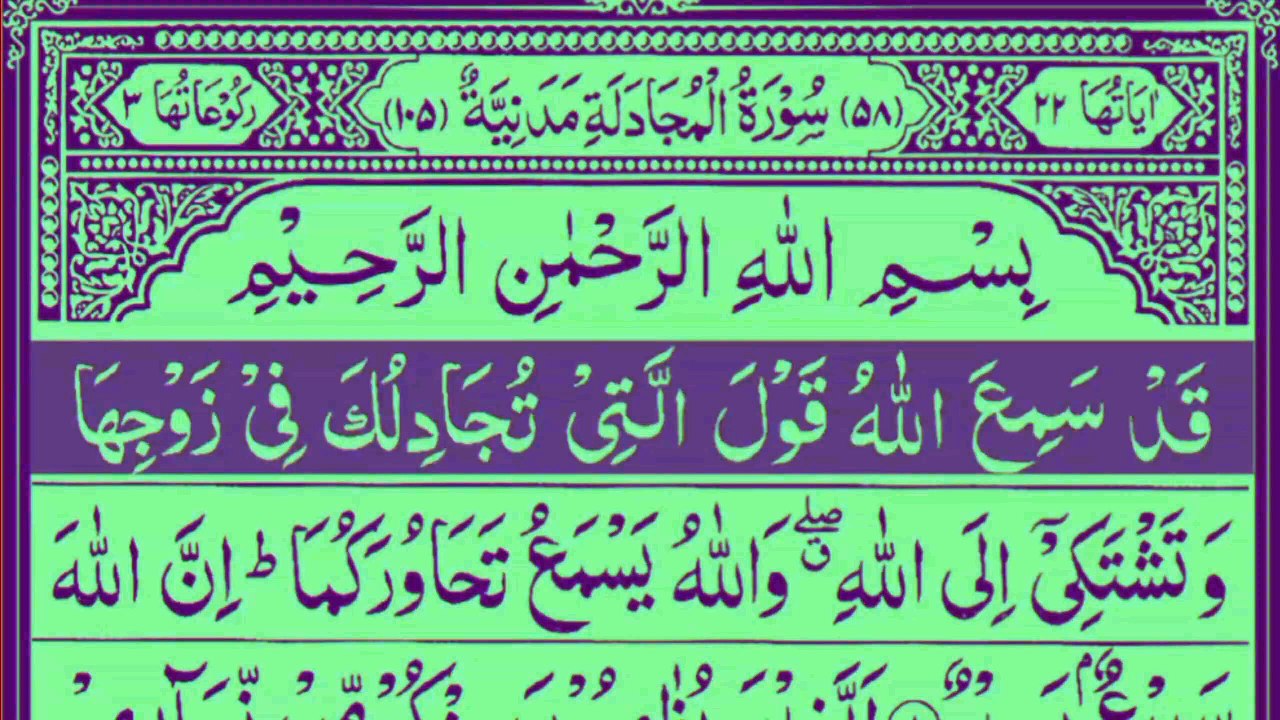 اٰيَاتُهَا ٢٢ (٥٨) سُوْرَةُ الْمُجَادَلَةِ مَدَنِيَّةٌ (١٠٥) رُكُوْعَاتُهَا ٣
بِسْمِ اللّٰهِ الرَّحْمٰنِ الرَّحِيْمِ
قَدْ سَمِعَ اللّٰهُ قَوْلَ الَّتِىْ تُجَادِلُكَ فِىْ زَوْجِهَا
وَ تَشْتَكِىْٓ اِلَى اللّٰهِ ۖق وَاللّٰهُ يَسْمَعُ تَحَاوُرَكُمَا ؕ اِنَّ اللّٰهَ